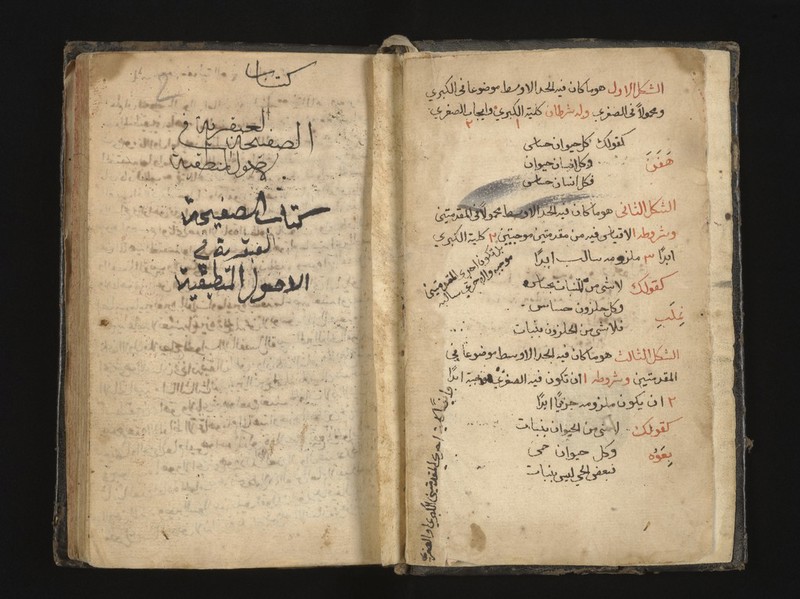 الشكل الاول هو ما كان فيه الحد الاوسط موضوعا في الكبرى
ومحمولا في الصغرى وله شرطان كلية الكبرى وايجاب الصغرى
كقولك كل حيوان حساس
وكل انسان حيوان
فكل انسان حساس
الشكل الثاني هو ما كان فيه الحد الاوسط محمولا في المقدمتين
وشروطه الا قياس فيه من مقدمتين موجبتين ٢ كلية الكبرى
ابدًا ٣ ملزومه سالب ابدًا
بل تكون احدى المقدمتين
موجبه والاخرى سالبه
كقولك لا شي من النبات بحساس
وكل حلزون حساس
فلا شي من الحلزون بنبات
الشكل الثالث هو ما كان فيه الحد الاوسط موضوعا في
المقدمتين وشروطه ١ ان تكون فيه الصغرى موجبة ابدًا
٢ ان يكون ملزومه جزئيًا ابدًا
كقولك لا شي من الحيوان بنبات
وكل حيوان حي
فبعض الحي ليس بنبات
احدى المقدمتين الكبرى او الصغرى
كتاب
الصفيحة العبقرية في
الاصول المنطقية
كتاب الصفيحة
العبقرية في
الاصول المنطقية